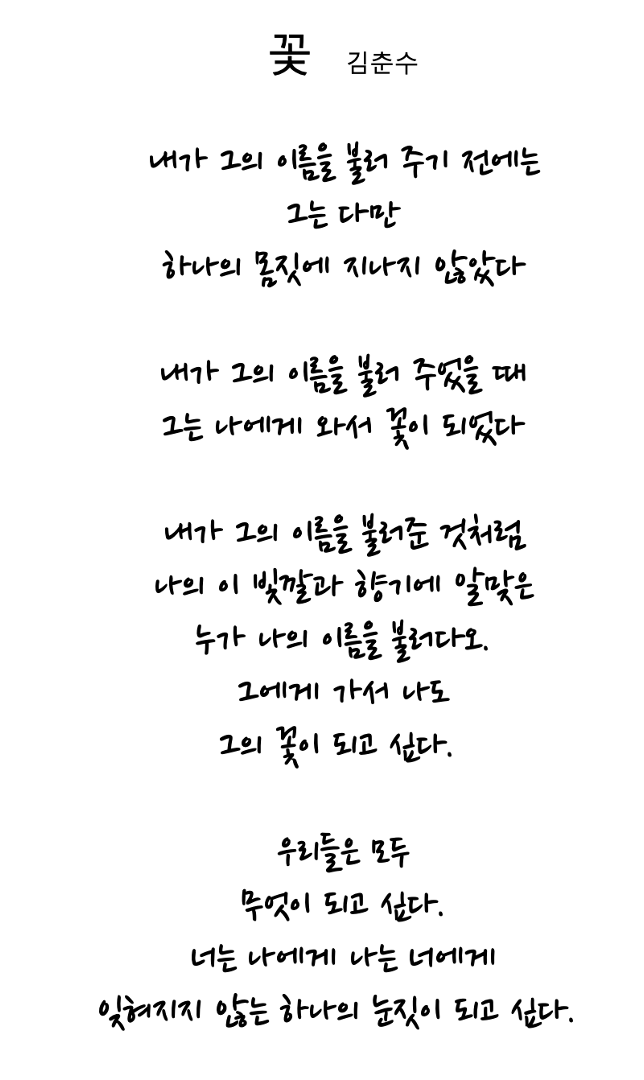 꽃 김춘수
내가 그의 이름을 불러 주기 전에는
그는 다만
하나의 몸짓에 지나지 않았다
내가 그의 이름을 불러 주었을 때
그는 나에게 와서 꽃이 되었다
내가 그의 이름을 불러준 것처럼
나의 이 빛깔과 향기에 알맞은
누가 나의 이름을 불러다오.
그에게 가서 나도
그의 꽃이 되고 싶다.
우리들은 모두
무엇이 되고 싶다.
너는 나에게 나는 너에게
잊혀지지 않는 하나의 눈짓이 되고 싶다.